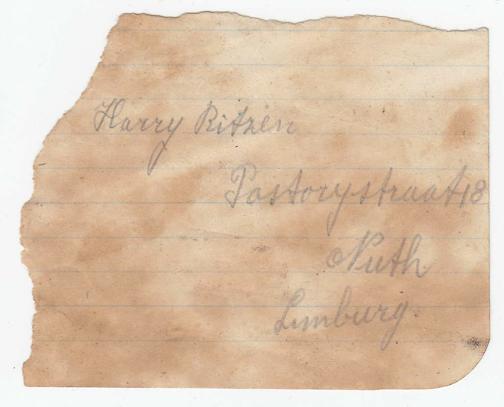 Harry Ritzen
Pastorystraat 18
Nuth
Limburg.